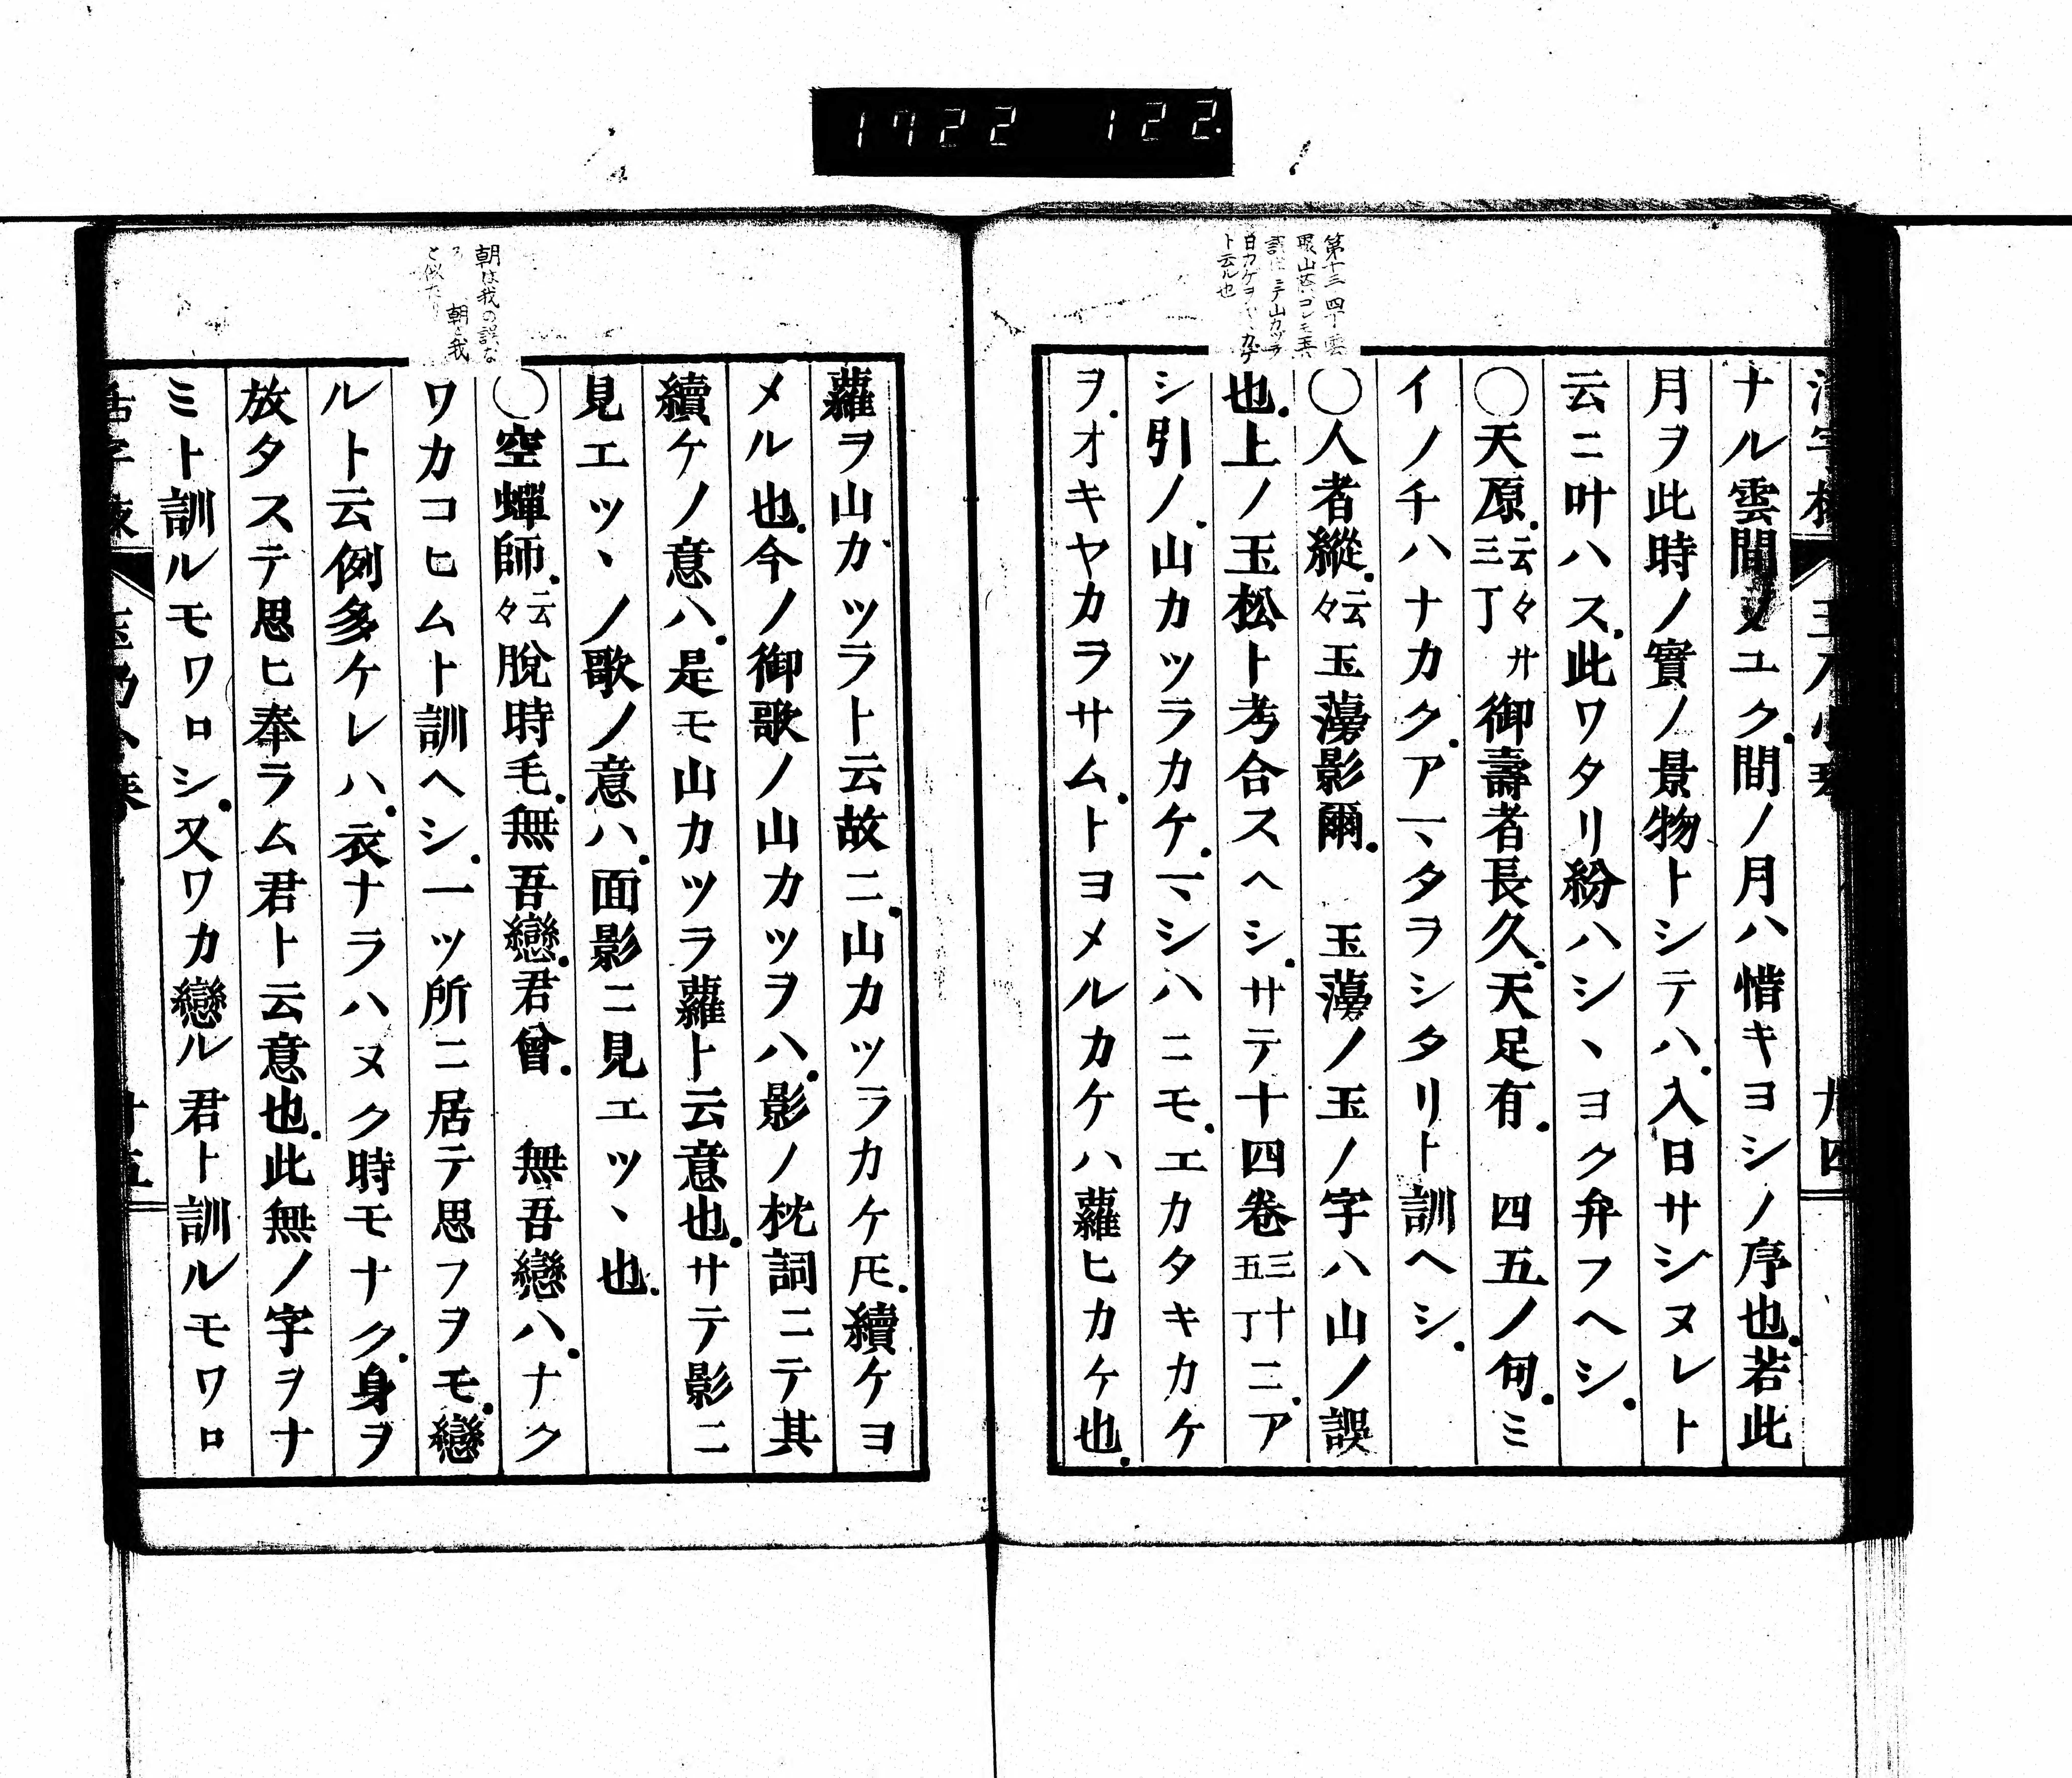 1722 122
ナル雲間ノユク。間ノ月ハ惜キヨシノ序也。若此
月ヲ此時ノ實ノ景物トシテハ。入日サシヌレト
云ニ叶ハス。此ワタリ紛ハシヽヨク弁フヘシ。
〇天原。云々 廿三丁 御壽者長久。天足有。 四五ノ句。ミ
イノチハナカク。アマタラシタリト訓ヘシ。
〇人者縱。云々 玉蘰影爾。 玉蘰ノ玉ノ字ハ山ノ誤
也。上ノ玉松ト考合スヘシ。サテ十四卷三十五丁ニ。ア
シ引ノ。山カツラカケ。マシハニモ。エカタキカケ
ヲ。オキヤカラサム。トヨメルカケハ蘿ヒカケ也。
蘿ヲ山カツラト云故ニ。山カツラカケ𪜈。續ケヨ
メル也。今ノ御歌ノ山カツヲハ。影ノ枕詞ニテ其
續ケノ意ハ。是モ山カツラ蘿ト云意也。サテ影ニ
見エツヽノ歌ノ意ハ。面影ニ見エツヽ也。
朝は我の誤な
朝と我
〇空蟬師。云々 脫時毛。無吾戀。君曾。 無吾戀ハ。ナク
ワカコヒムト訓ヘシ。一ツ所ニ居テ思フヲモ。戀
ルト云例多ケレハ。衣ナラハヌク時モナク。身ヲ
放タステ思ヒ奉ラム君ト云意也。此無ノ字ヲナ
ミト訓ルモワロシ。又ワカ戀ル君ト訓ルモワロ